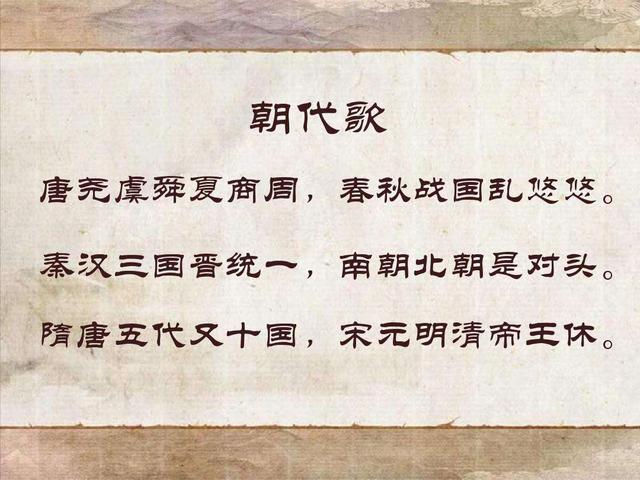 朝代歌
唐尧虞舜夏商周，春秋战国乱悠悠。
秦汉三国晋统一，南朝北朝是对头。
隋唐五代又十国，宋元明清帝王休。